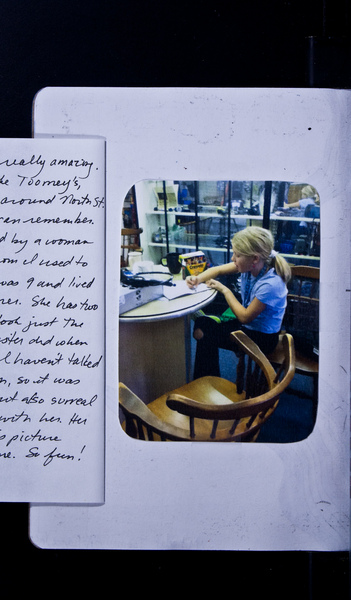 really amazing.
the Toomey's,
around North St.
can remember.
d by a woman
om I used to
was 9 and lived
her. She has two
look just the
ster did when
I haven't talked
n, so it was
but also surreal
with her. Her
s picture
me. So fun!